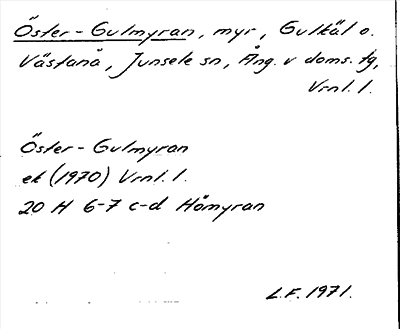 Öster-Gulmyran, myr, Gulkäl o.
Västanå, Junsele sn, Ång. v doms. tg,
Vrnl. l.
Öster-Gulmyran
ek (1970) Vrnl. l.
20 H 6-7 c-d Håmyran
L.F. 1971.